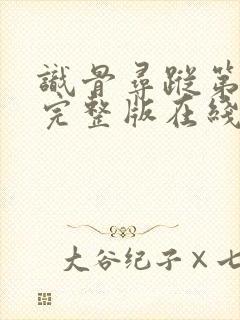 識骨尋蹤第
完整版在綫
大谷纪子×七